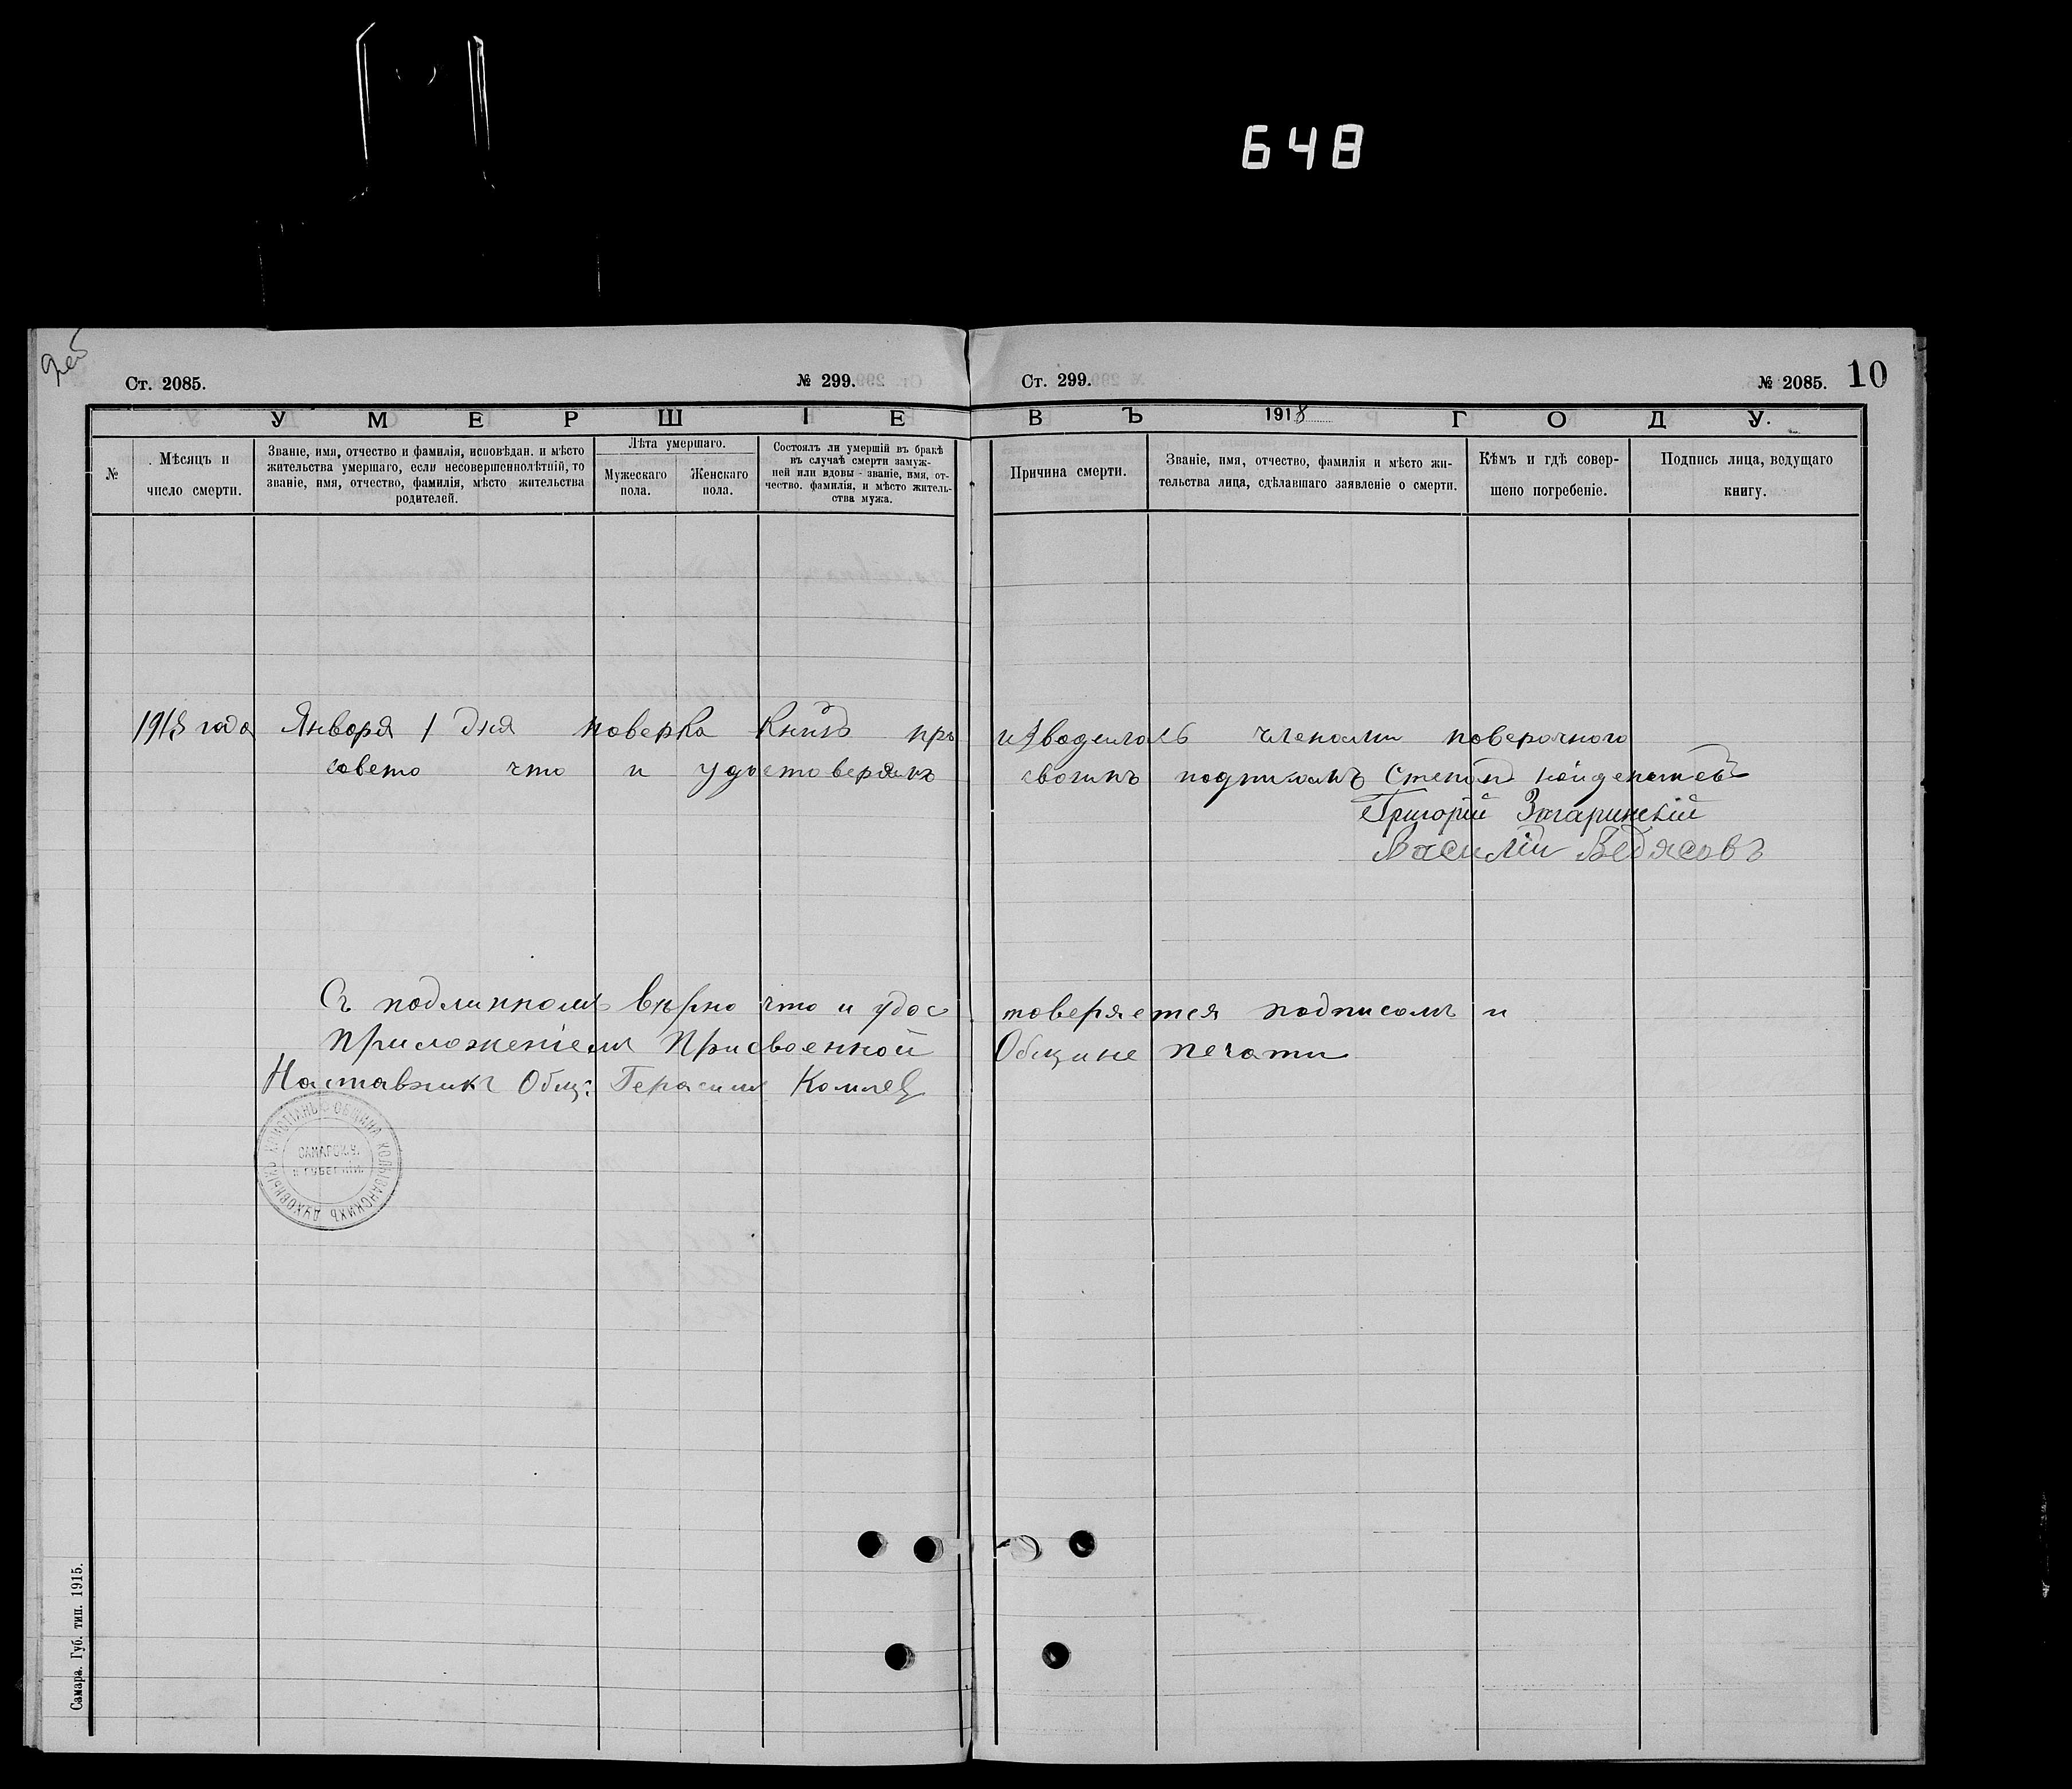 648
Ст. 2085.
№ 299.
Ст. 299.
№ 2085.
10
УМЕРШІЕ ВЪ 1918 ГОДУ.
№
Мѣсяцъ и
число смерти.
Званіе, имя, отчество и фамилія, исповѣдан. и мѣсто
жительства умершаго, если несовершеннолѣтній, то
званіе, имя, отчество, фамилія, мѣсто жительства
родителей.
Лѣта умершаго.
Мужескаго
пола.
Женскаго
пола.
Состоялъ ли умершій въ бракѣ
въ случаѣ смерти замуж-
ней или вдовы - званіе, имя, от-
чество. фамилія, и мѣсто житель-
ства мужа.
Причина смерти.
Званіе, имя, отчество, фамилія и мѣсто жи-
тельства лица, сдѣлавшаго заявленіе о смерти.
Кѣмъ и гдѣ совер-
шено погребеніе.
Подпись лица, ведущаго
книгу.
1918 года Января 1 дня поверка Книгъ про изводилась членами поверочного
совета что и удостоверяемъ своимъ подписомъ Степанъ
Григорій Загаринскій
Василій Ведясовъ
Съ подлиннымъ вѣрно что и удос товеряется подписомъ и
Приложеніемъ Присвоенной Общине печати
Наставникъ Общ: Герасимъ
ОБЩИНА КОЛЫВАНСКИХЪ ДУХОВНЫХЪ ХРИСТІАНЪ
САМАРСК. У.
И ГУБЕРНІИ.
Самара. Губ. тип. 1915.